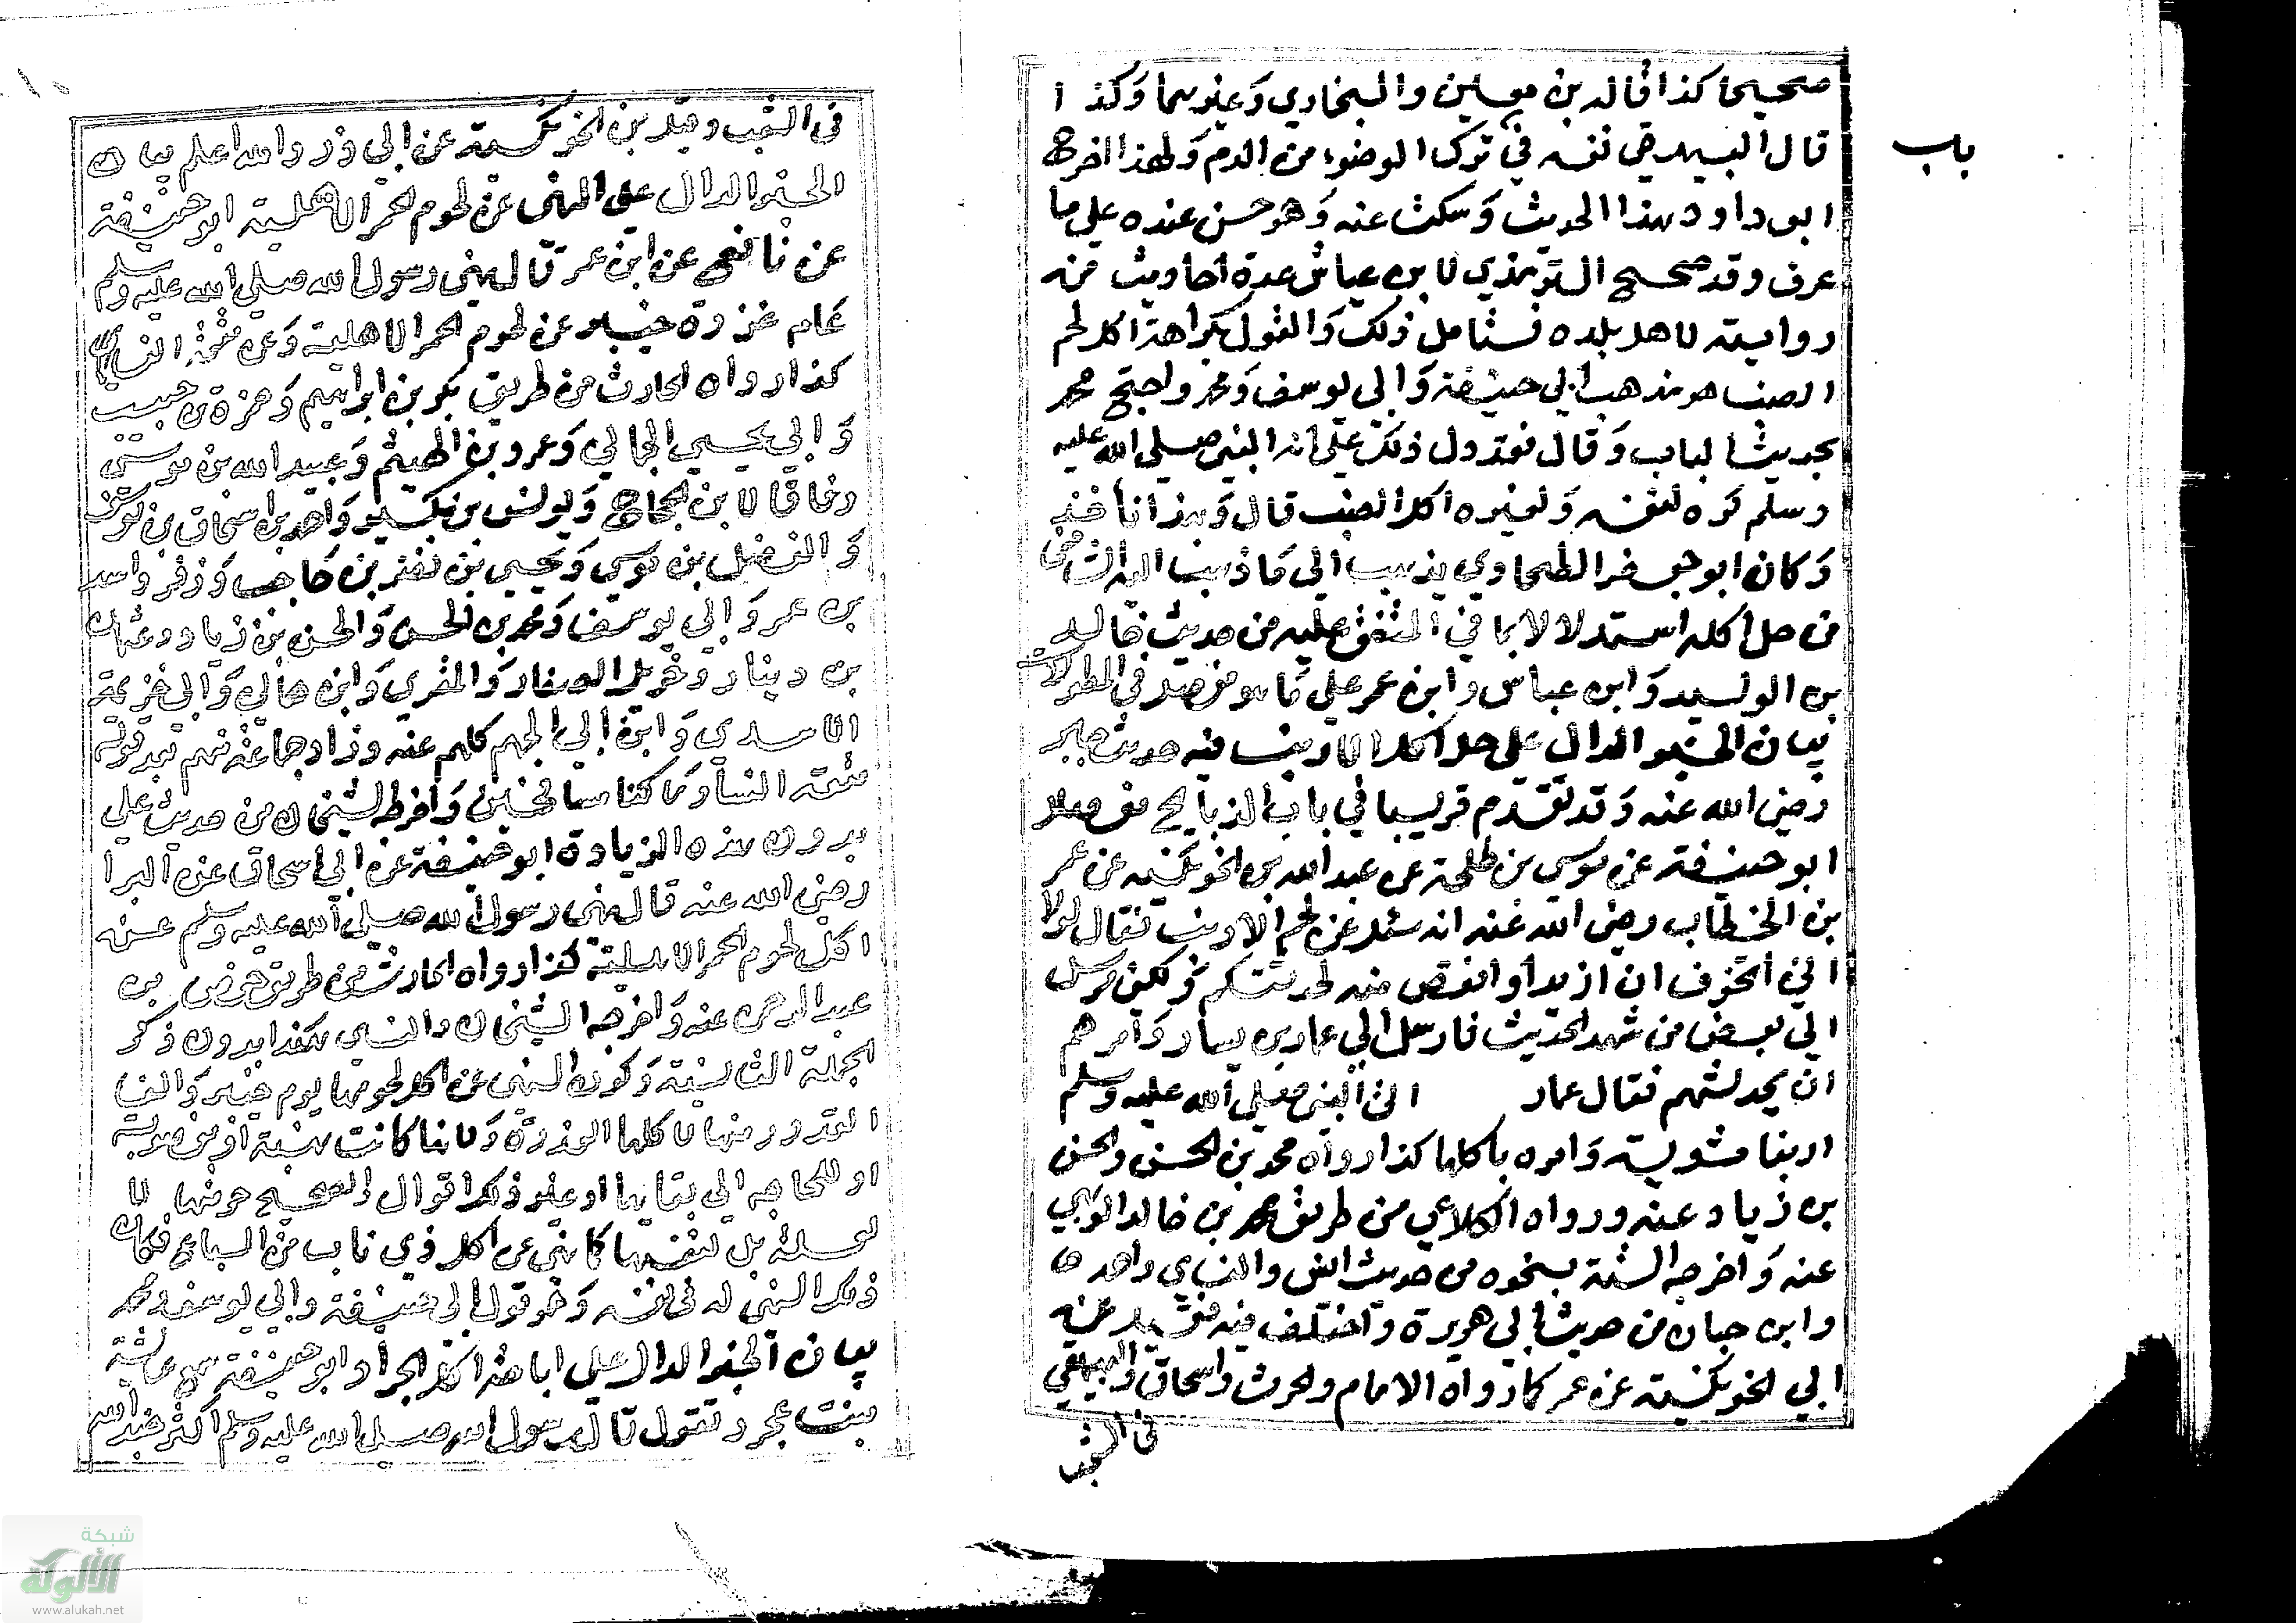 باب
صحيحا كذا قاله بن معين والبخاري وغيرهما وكذا
قال البيهقي نفسه في ترك الوضوء من الدم ولهذا اخرج
ابو داود هذا الحديث وسكت عنه وهو حسن عنده على ما
عرف وقد صحح الترمذي لابن عياش عدة احاديث من
روايته لاهل بلده فتامل ذلك والقول بكراهة اكل لحم
الضب هو مذهب ابي حنيفة وابي يوسف ومحمد واحتج محمد
بحديث الباب وقال فقد دل ذلك على ان النبي صلى الله عليه
وسلم كره لنفسه ولغيره اكل الضب قال وبهذا ناخذ
وكان ابو جعفر الطحاوي يذهب الى ما ذهب اليه الشافعي
من حل اكله استدلالا بما في المتفق عليه من حديث خالد
بن الوليد وابن عباس وابن عمر على ما هو مفصل في المطولات
بيان الخبر الدال على حل اكل الارنب فيه حديث جابر
رضي الله عنه وقد تقدم قريبا في باب الذبايح مفصلا
ابو حنيفة عن موسى بن طلحة عن عبد الله بن الحوتكيه عن عمر
بن الخطاب رضي الله عنه انه سئل عن لحم الارنب فقال لولا
اني اتخوف ان ازيد او انقص منه لحدثتكم ولكن مرسل
الي بعض من شهد الحديث فارسل الي عمار بن يسار وامرهم
ان يحدثهم فقال عمار اتى النبي صلى الله عليه وسلم
ارنبا مشوية وامره باكلها كذا رواه محمد بن الحسن والحسن
بن زياد عنه ورواه الكلاعي من طريق محمد بن خالد الوهبي
عنه واخرجه الستة بنحوه من حديث انس والنساي واحمد
وابن حبان من حديث ابي هريرة واختلف فيه فقيل عنه
ابي الحوتكية عن عمر كما رواه الامام والحرث واسحاق والبيهقي
في الشعب
في الشعب وقيل بن الحوتكية عن ابي ذر والله اعلم بيان
الخبر الدال على النهى عن لحوم الحمر الاهلية ابو حنيفة
عن نافع عن ابن عمر قال نهى رسول الله صلى الله عليه وسلم
عام غزوة خيبر عن لحوم الحمر الاهلية وعن متعة النساء
كذا رواه الحارث من طريق بكر بن ابراهيم وحمزة بن حبيب
وابي يحيى الحماني وعمرو بن الهيثم وعبيد الله بن موسى
وخاقان بن الحجاج ويونس بن بكير واحمد بن اسحاق بن يوسف
والفضل بن موسى ويحيى بن نصر بن حاجب وزفر واسد
بن عمر وابي يوسف ومحمد بن الحسن والحسن بن زياد وعثمان
بن دينار وخويل الصفار والمقري وابن هاني وابي خزيمة
الاسدي وابن ابي الجهم كلهم عنه وزاد جماعة منهم بعد قوله
متعة النساء وما كنا مسافحين واخرجه الشيخان من حديث علي
بدون هذه الزيادة ابو حنيفة عن ابي اسحاق عن البرا
رضي الله عنه قال نهى رسول الله صلى الله عليه وسلم عن
اكل لحوم الحمر الاهلية كذا رواه الحارث من طريق حفص بن
عبد الرحمن عنه واخرجه الشيخان والنساي هكذا بدون ذكر
الجملة الثانية وكون النهي عن اكل لحومها يوم خيبر والفا
القدور منها لاكلها العذرة ولانها كانت نهبة او مغصوبة
او للحاجه الي بقايها او غير ذلك اقوال والصحيح حرمتها لا
لعلة بل لنفسها كما نهى عن اكل ذي ناب من السباع فكان
ذلك النهي له في نفسه وهو قول ابي حنيفة وابي يوسف ومحمد
بيان الخبر الدال على اباحة اكل الجراد ابو حنيفة سمع عائشة
بنت عجرد تقول قال رسول الله صلى الله عليه وسلم اكثر جند الله
شبكة
الألوكة
www.alukah.net